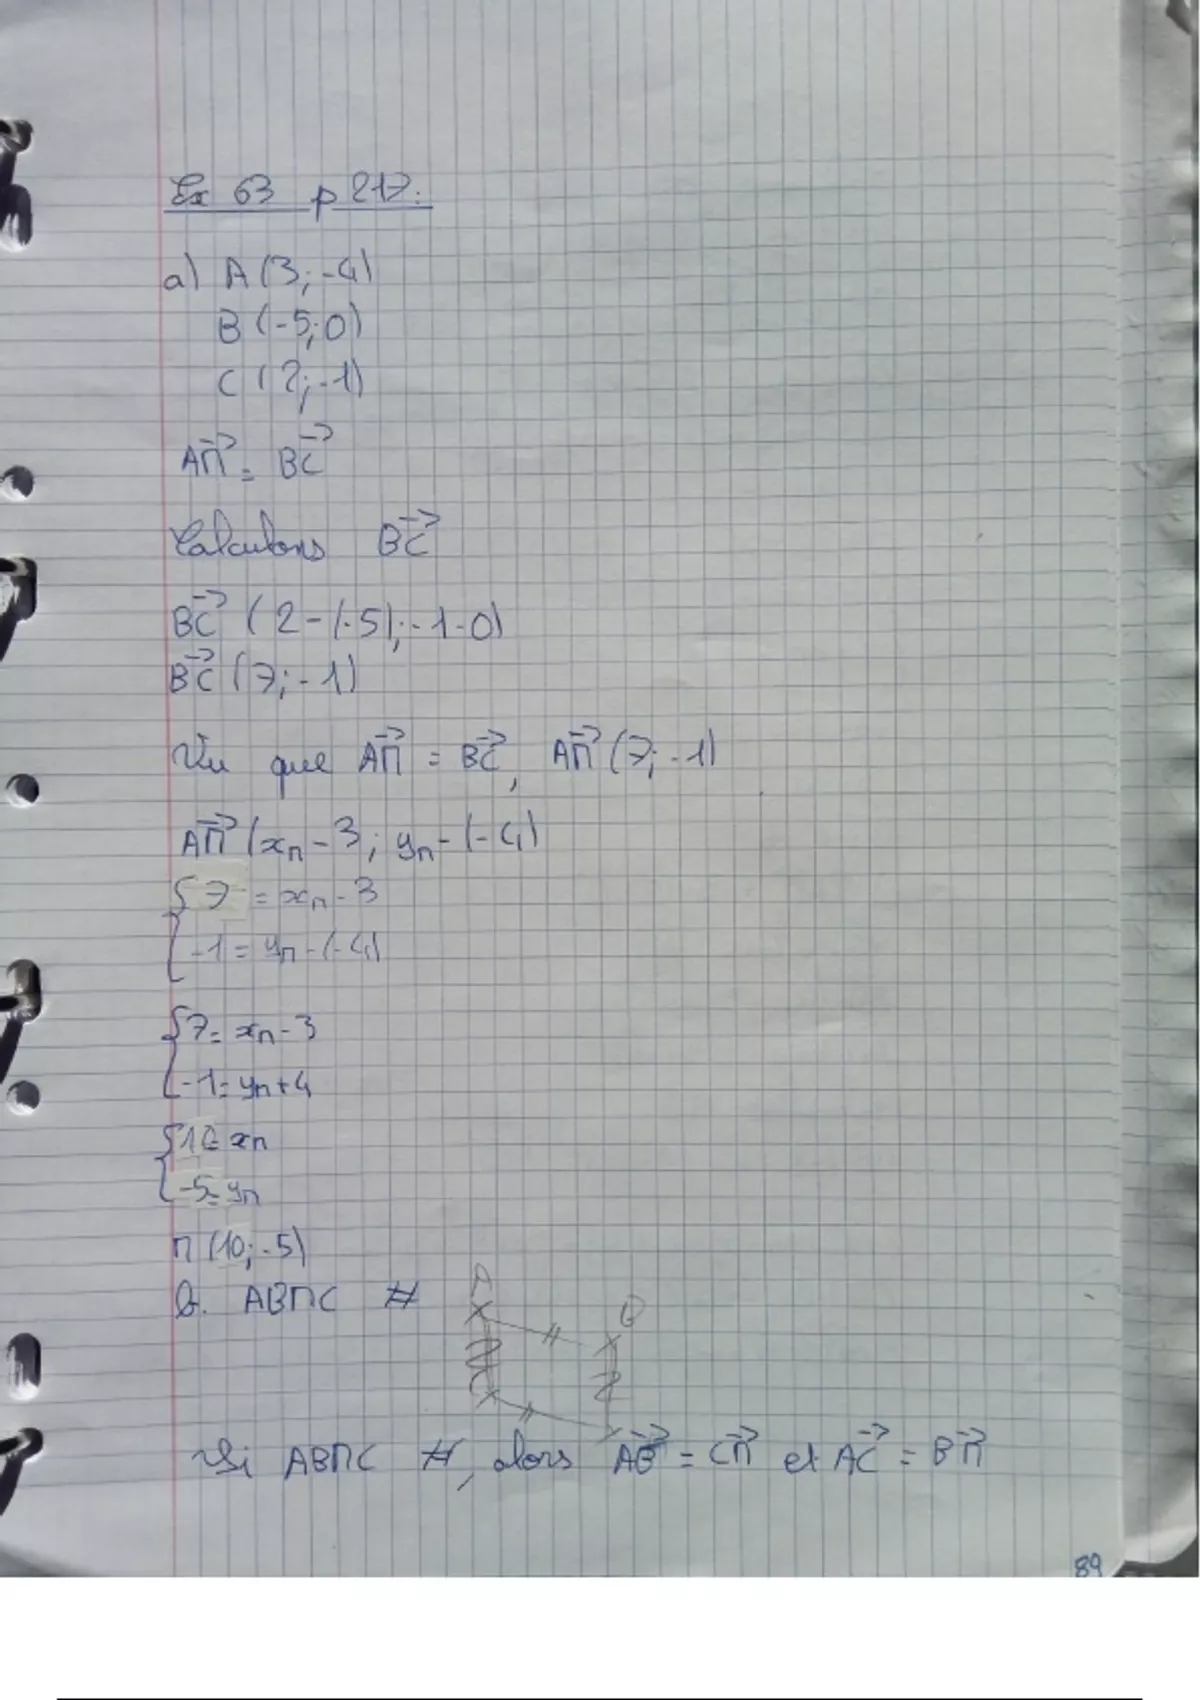 Ex 63 p 217:
a) A (3; -4)
B (-5; 0)
C (2; -1)
AM⃗ = BC⃗
Calculons BC⃗
BC⃗ (2-(-5); -1-0)
BC⃗ (7; -1)
Vu que AM⃗ = BC⃗, AM⃗ (7; -1)
AM⃗ (xM - 3; yM - (-4)
{ 7 = xM - 3
-1 = yM - (-4)
{ 7 = xM - 3
-1 = yM + 4
{ 10 = xM
-5 = yM
M (10; -5)
b. ABMC #
A
B
C
Si ABMC #, alors AB⃗ = CM⃗ et AC⃗ = BM⃗
89